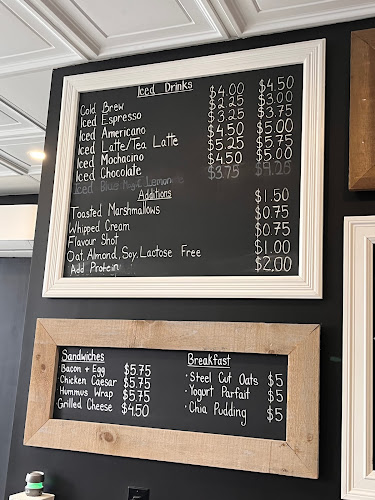 Iced Drinks
Cold Brew $4.00 $4.50
Iced Espresso $2.25 $3.00
Iced Americano $3.25 $3.75
Iced Latte/Tea Latte $4.50 $5.00
Iced Mochacino $5.25 $5.75
Iced Chocolate $4.50 $5.00
Iced Blue Night Lemonade $3.75 $4.25
Additions
Toasted Marshmallows $1.50
Whipped Cream $0.75
Flavour Shot $0.75
Oat, Almond, Soy, Lactose Free $1.00
Add Protein $2.00
Sandwiches
Bacon + Egg $5.75
Chicken Caesar $5.75
Hummus Wrap $5.75
Grilled Cheese $4.50
Breakfast
· Steel Cut Oats $5
· Yogurt Parfait $5
· Chia Pudding $5